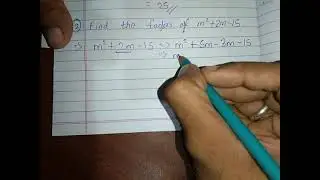 = 25//
3) Find the factors of m²+2m-15
⇒ m² + 2m - 15 ⇒ m² + 5m - 3m - 15
⇒ m